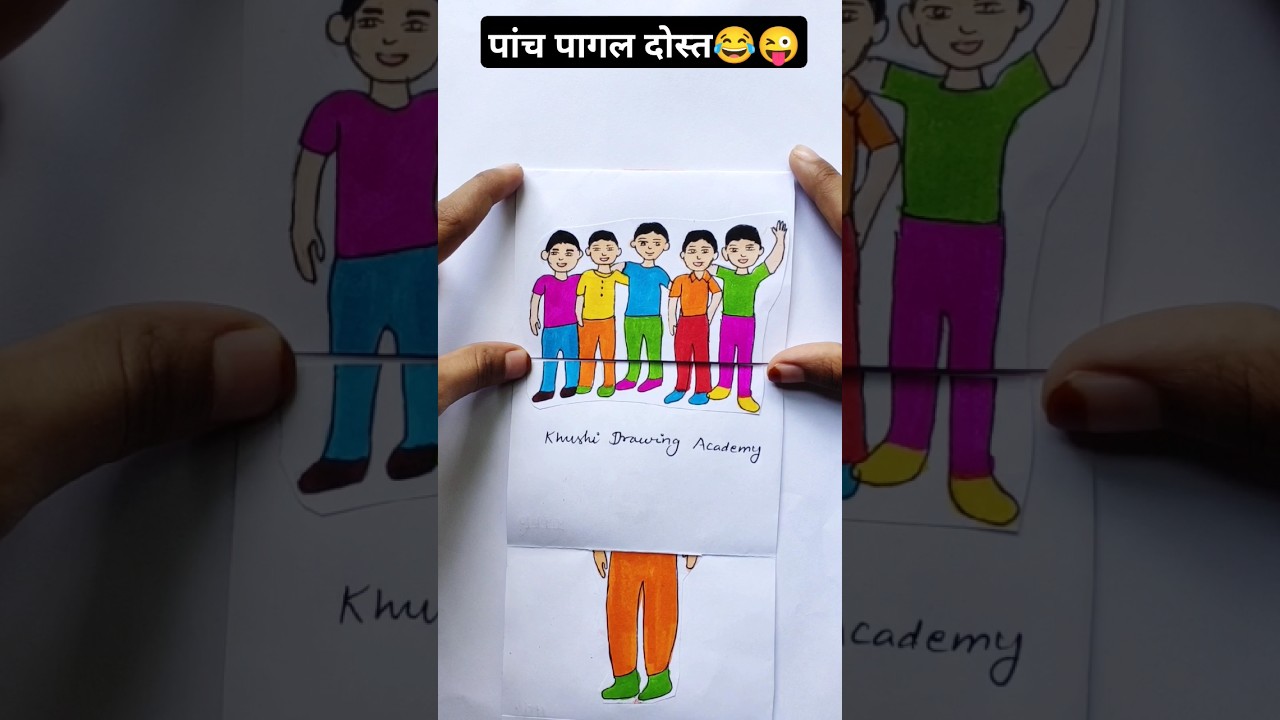 पांच पागल दोस्त😂😜
Khushi Drawing Academy
Khu
cademy